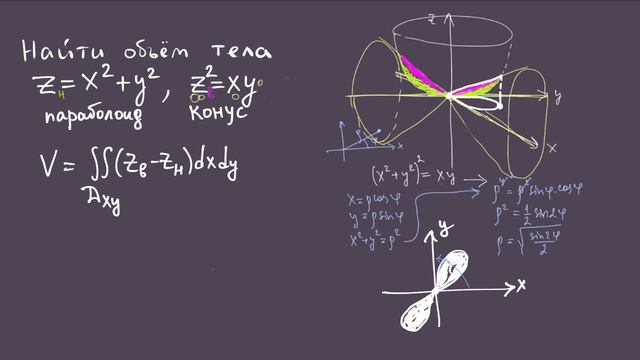 Найти объём тела
z = x² + y² , z² = xy
н в
параболоид конус
V = ∬(z_в − z_н) dx dy
D_xy
z
y
x
ρ
φ
x
(x² + y²)² = xy
x = ρcosφ
y = ρsinφ
x² + y² = ρ²
ρ⁴ = ρ² sinφ·cosφ
ρ² = ½ sin2φ
ρ = √(sin2φ/2)
y
x